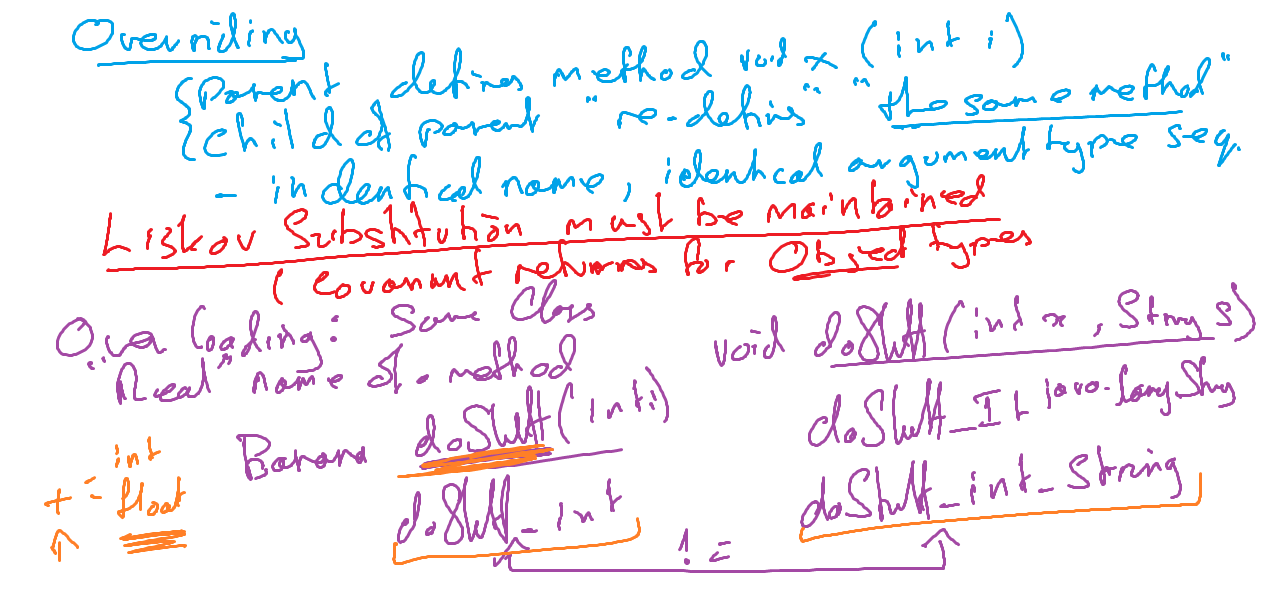 Overriding
{ Parent defines method void x (int i)
{ child of parent "re-defines" "the same method"
- indentical name, identical argument type seq.
Liskov Substitution must be maintained
( Covariant returns for Object types
Overloading: Same Class
"Real" name of a method
void doStuff (int x, String s)
Banana doStuff (int i)
doStuff_I L java.lang.String
int
+ = float
doStuff_int
doStuff_int_String
! =